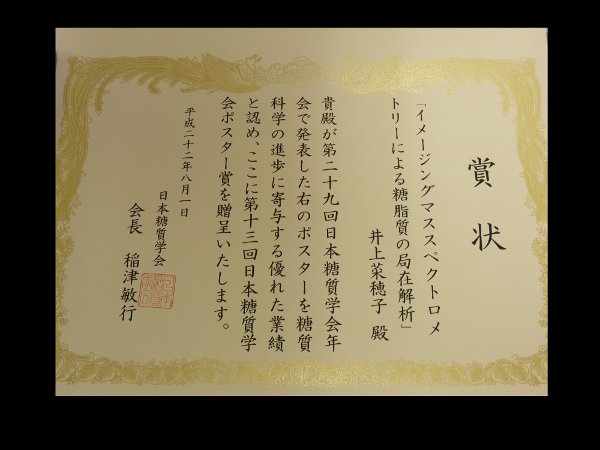 賞状
「イメージングマススペクトロメ
トリーによる糖脂質の局在解析」
井上菜穂子 殿
貴殿が第二十九回日本糖質学会年
会で発表した右のポスターを糖質
科学の進歩に寄与する優れた業績
と認め、ここに第十三回日本糖質学
会ポスター賞を贈呈いたします。
平成二十二年八月一日
日本糖質学会
会長 稲津敏行